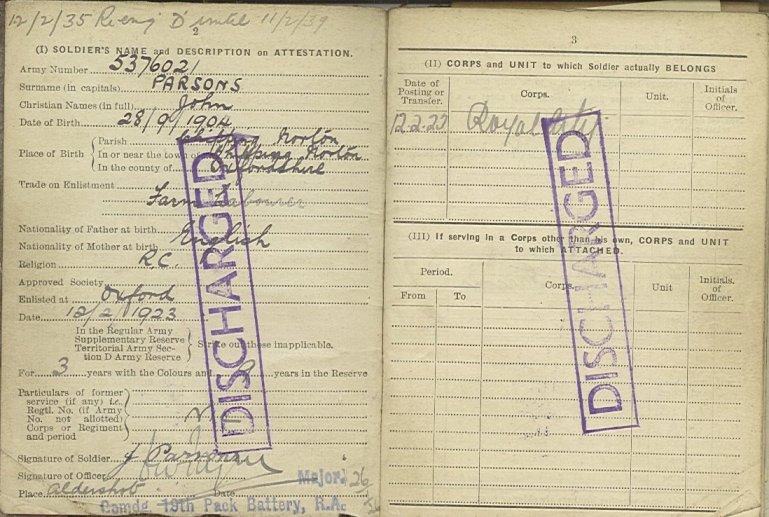 12/2/35 Re eng 'D' until 11/2/39
2
(I) SOLDIER'S NAME and DESCRIPTION on ATTESTATION.
Army Number 5376021
Surname (in capitals) PARSONS
Christian Names (in full) John
Date of Birth 28/9/1904
Place of Birth
Parish Chipping Norton
In or near the town of Chipping Norton
In the county of Oxfordshire
Trade on Enlistment
Farm Labourer
Nationality of Father at birth English
Nationality of Mother at birth
Religion R.C.
Approved Society
Enlisted at Oxford
Date 12/2/1923
In the Regular Army
Supplementary Reserve
Territorial Army Sec-
tion D Army Reserve
Strike out those inapplicable.
For 3 years with the Colours and years in the Reserve
Particulars of former
service (if any) i.e.,
Regtl. No. (if Army
No. not allotted)
Corps or Regiment
and period
Signature of Soldier J Parsons
Signature of Officer Major.
Place Aldershot Date 26
Comdg 19th Pack Battery, R.A.
DISCHARGED
3
(II) CORPS and UNIT to which Soldier actually BELONGS
Date of
Posting or
Transfer.
Corps.
Unit.
Initials
of
Officer.
12-2-23 Royal Arty.
(III) If serving in a Corps other than his own, CORPS and UNIT
to which ATTACHED.
Period.
From To
Corps.
Unit
Initials.
of
Officer.
DISCHARGED